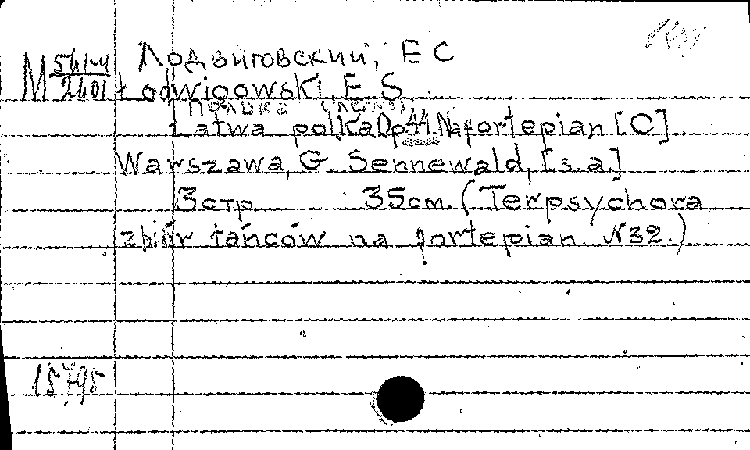 Лодвиговский, Е С
М 541-4
2401
Łodwigowski, E. S.
Полька
Łatwa polka Op 44. Na fortepian [C]
Warszawa, G. Sennewald, [s.a.]
3 стр 35 см. (Terpsychora
zbiór tańców na fortepian. N 32.)
15795